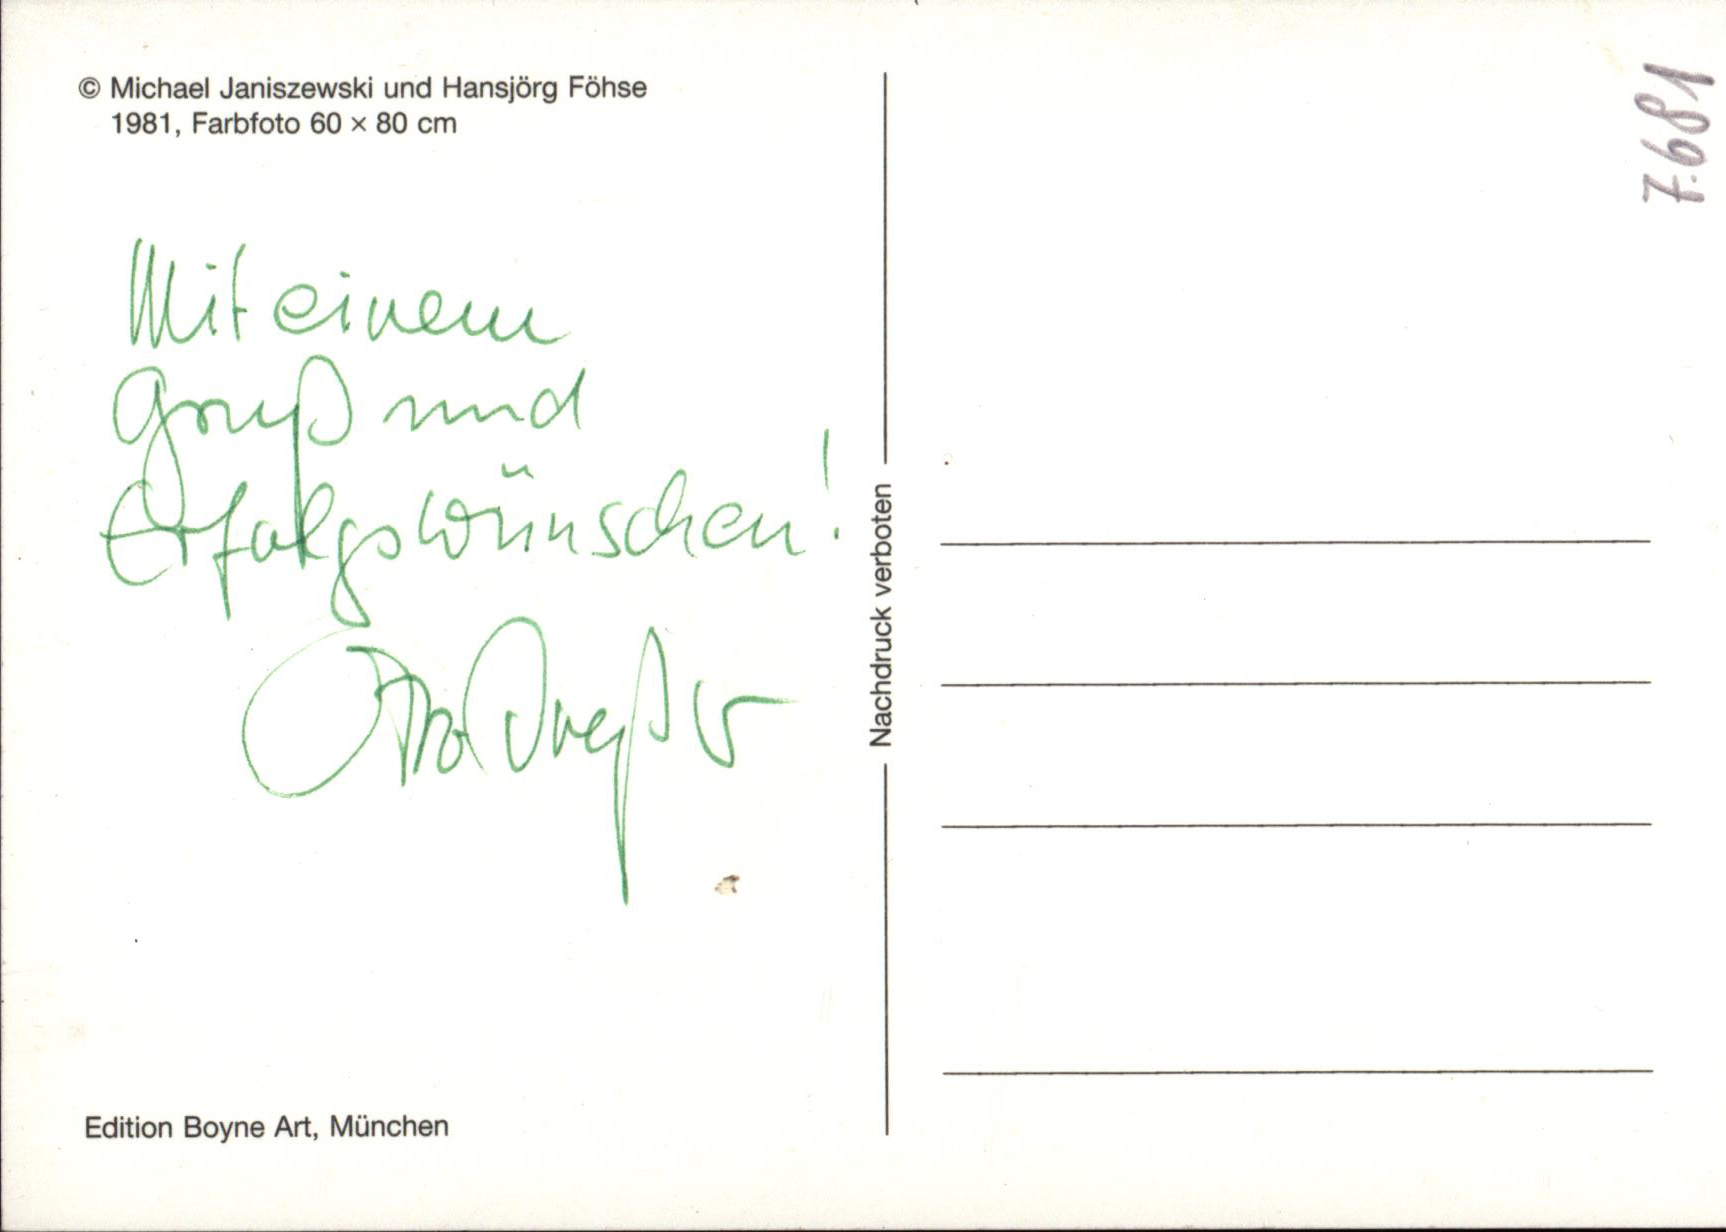 © Michael Janiszewski und Hansjörg Föhse
1981, Farbfoto 60 × 80 cm
Mit einem
Gruß und
Erfolgswünschen!
Otto Dreßler
Edition Boyne Art, München
Nachdruck verboten
7.681